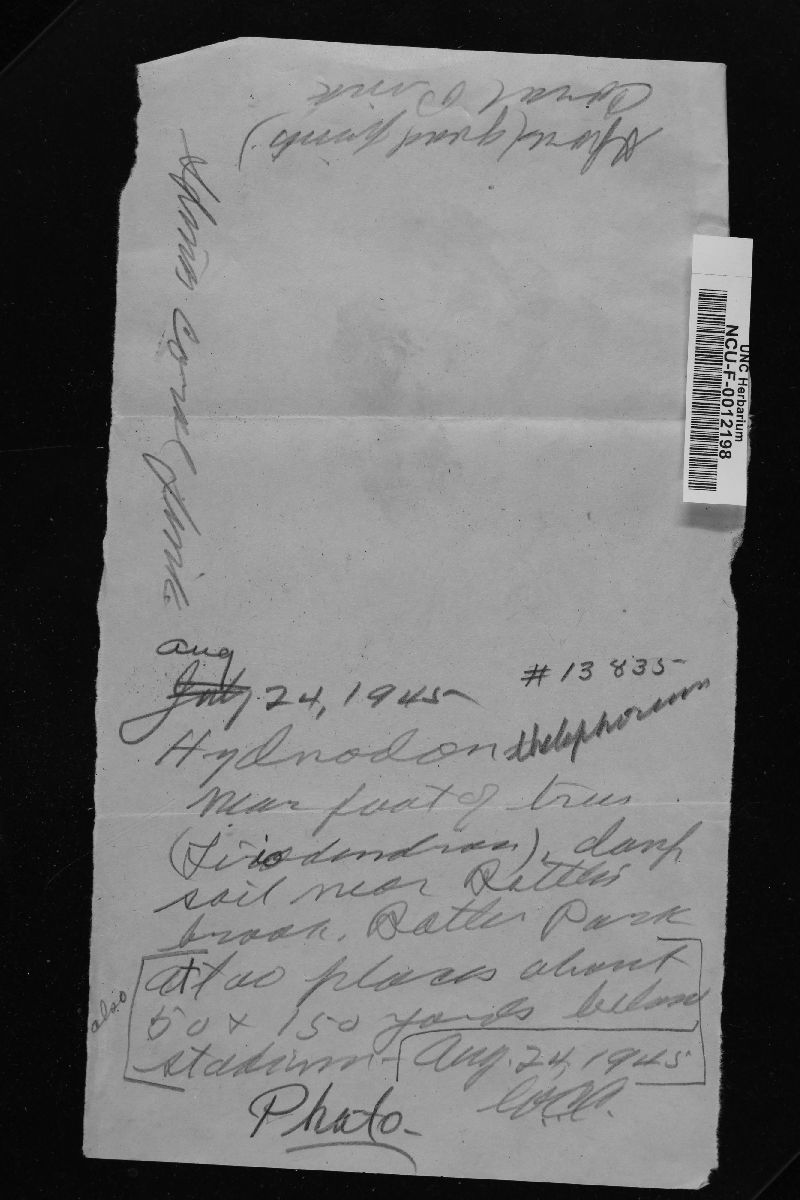 Coral Pink
Spores (good prints)
Spores coral pink.
UNC Herbarium
NCU-F-0012198
Aug
July 24, 1945
# 13835
Hydnodon thelephorum
Near foot of tree
(Liriodendron), damp
soil near Battle's
brook. Battle Park
also
at two places about
50 x 150 yards below
stadium - Aug. 24, 1945
Photo-